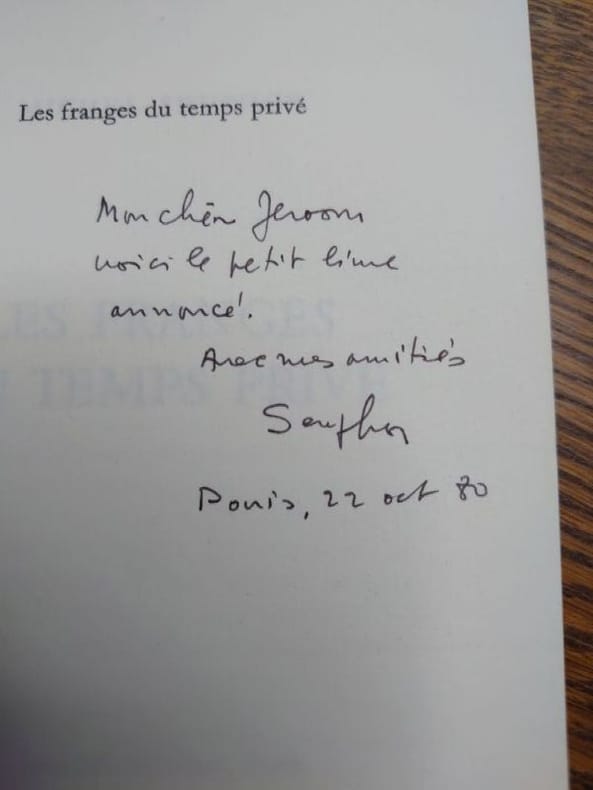 Les franges du temps privé
Mon cher Jeroom
voici le petit livre
annoncé.
Avec mes amitiés
Seuphor
Paris, 22 oct 80
LES FRANGES
TEMPS PRIVÉ